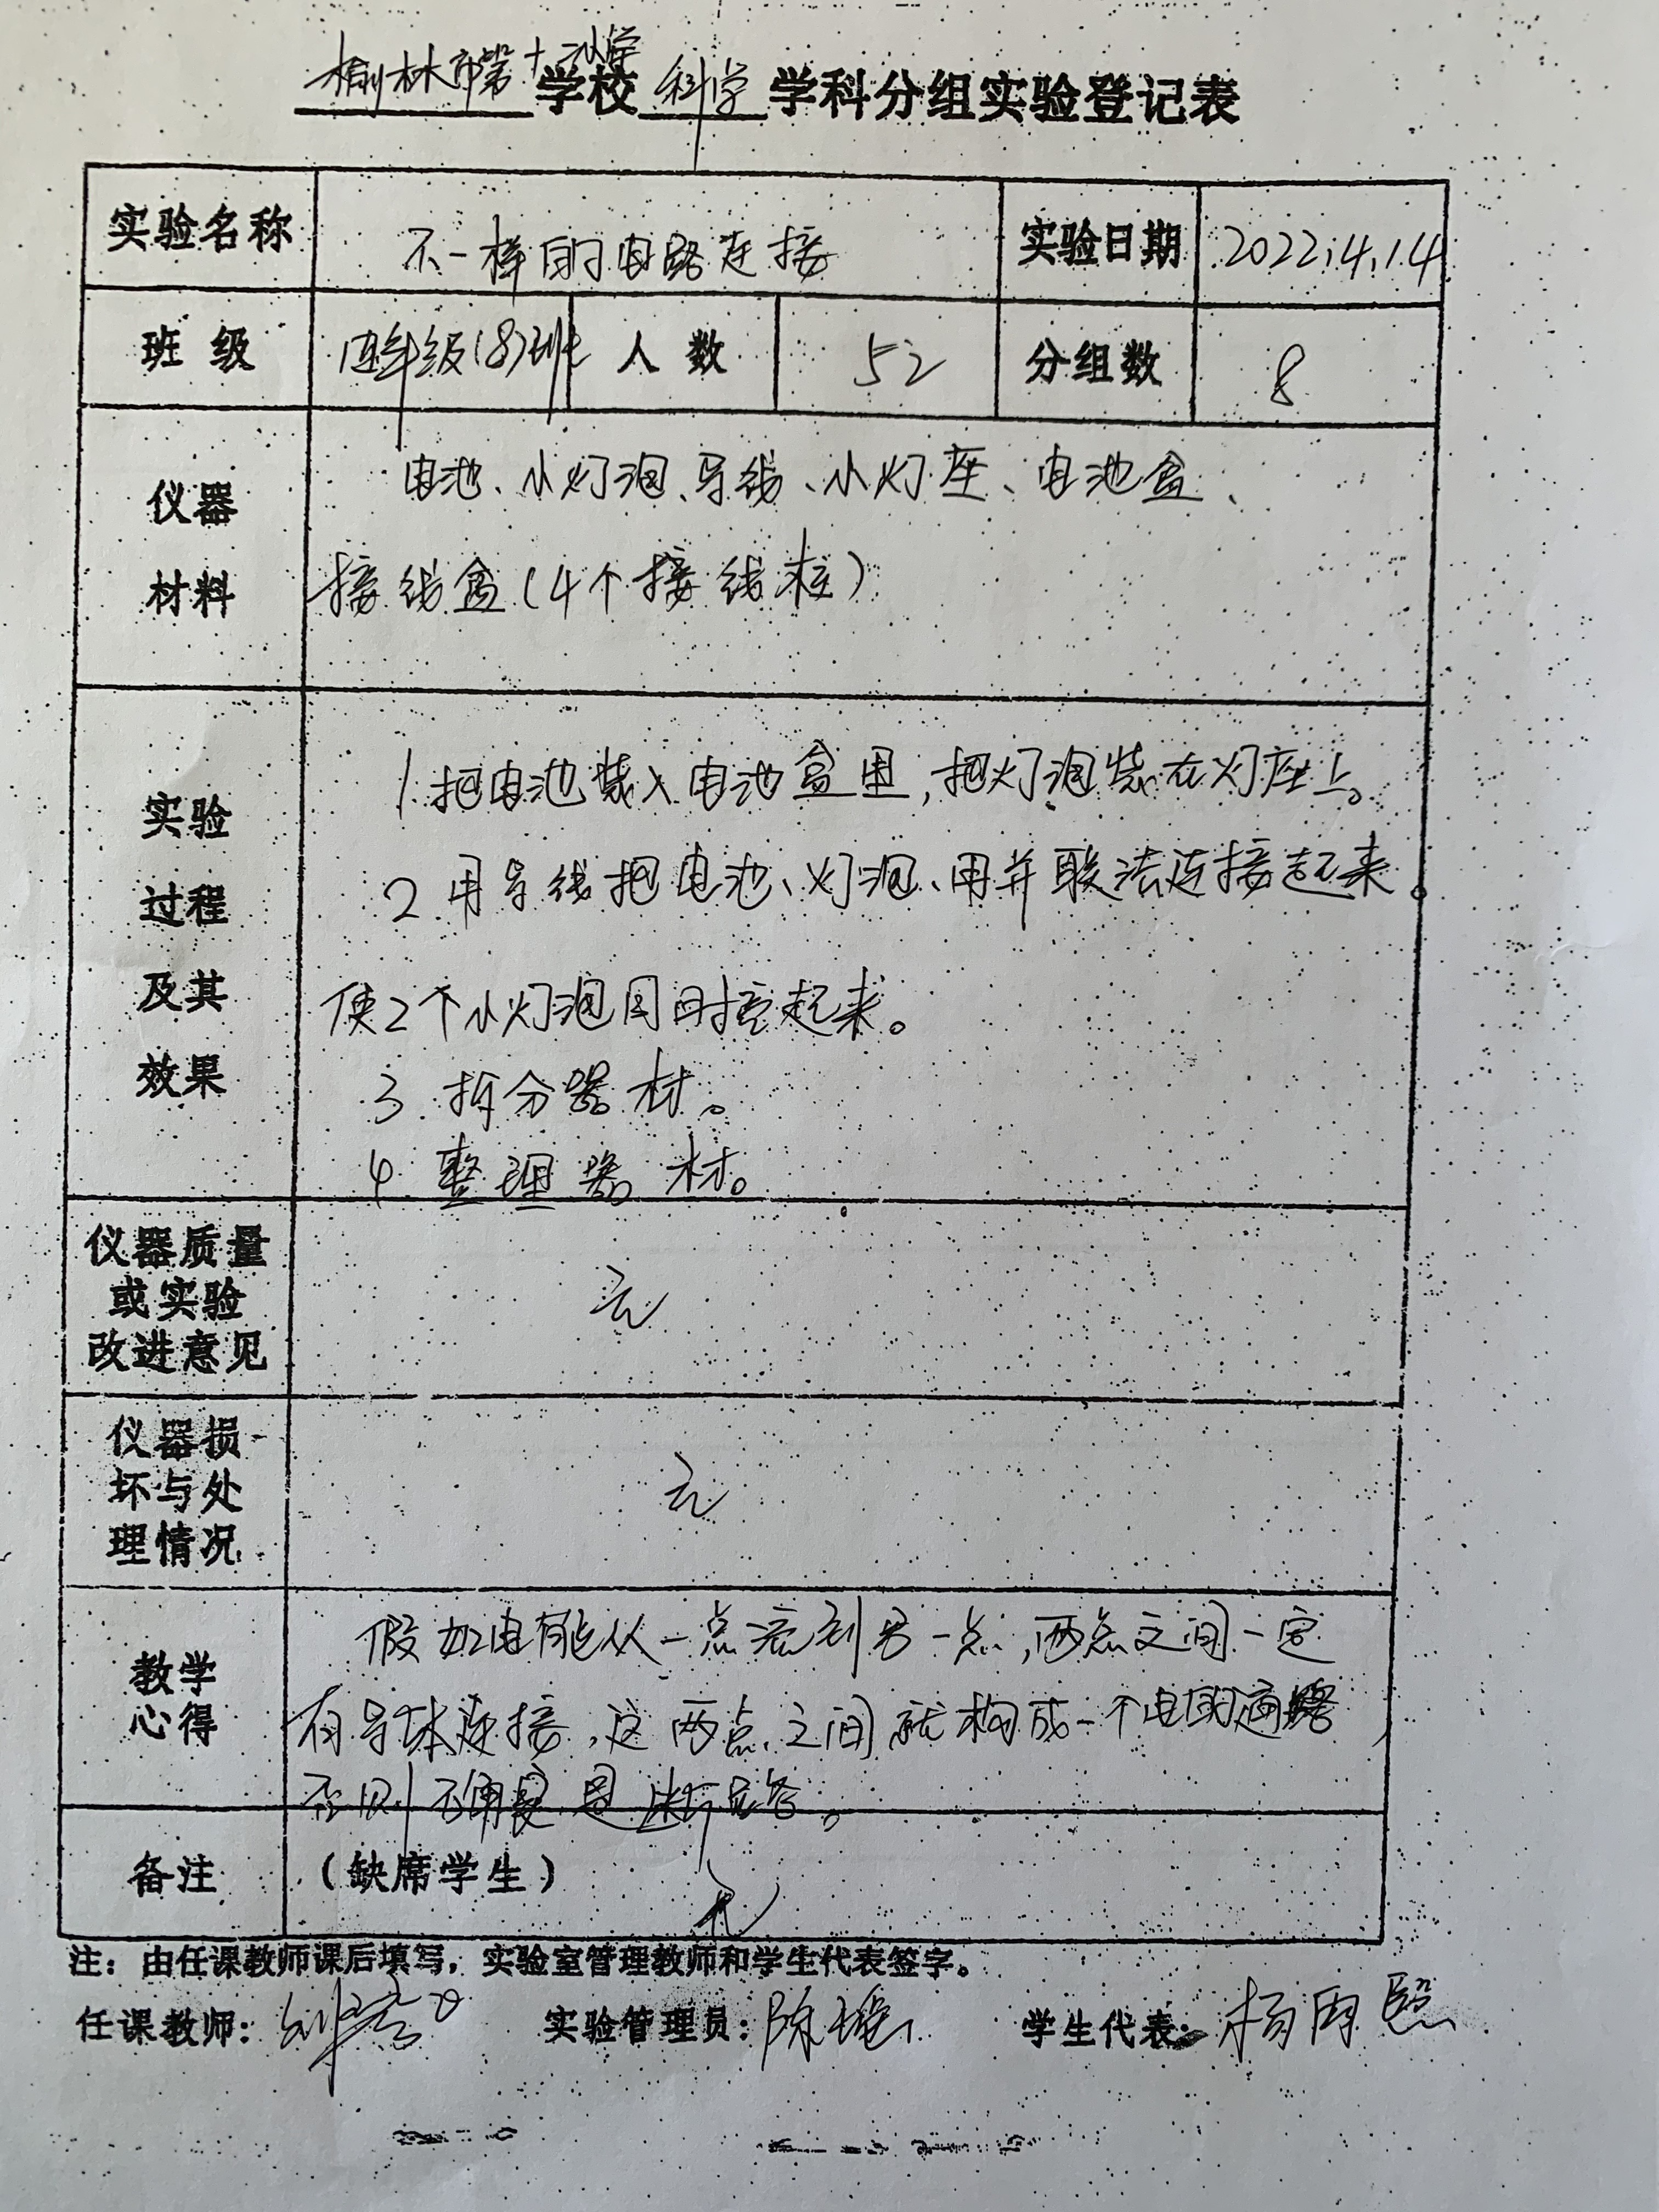 榆林市第十二小学 学校 科学 学科分组实验登记表
实验名称 不一样的电路连接 实验日期 2022.4.14
班级 四年级(8)班 人数 52 分组数 8
仪器材料 电池、小灯泡、导线、小灯座、电池盒、
接线盒(4个接线柱)
实验过程及其效果 1.把电池装入电池盒里,把灯泡装在灯座上。
2.用导线把电池、灯泡、用并联法连接起来。
使2个小灯泡同时接起来。
3.拆分器材。
4.整理器材。
仪器质量或实验改进意见 无
仪器损坏与处理情况 无
教学心得 假如电能从一点流到另一点,两点之间一定
有导体连接,这两点之间就构成一个电的通路,
否则 是断路。
备注 (缺席学生) 无
注:由任课教师课后填写,实验室管理教师和学生代表签字。
任课教师: 实验管理员: 陈 学生代表: 杨雨熙